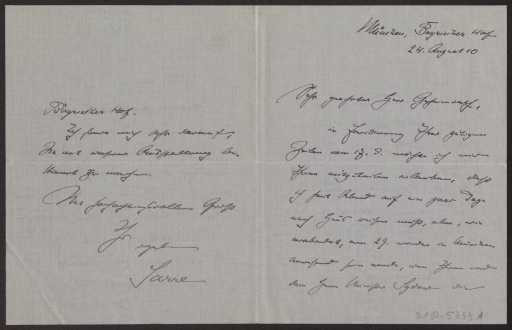 München, Bayrischer Hof
24. August 10
Sehr geehrter Herr Geheimrath,
in Erwiderung Ihrer gütigen
Zeilen vom 17. d. möchte ich mir
Ihnen mitzuteilen erlauben, daß
ich heut Abend auf ein paar Tage
nach Haus reisen muß, aber, wie
am 29. wieder in München
anwesend sein werde, um Ihnen und
dem Herrn Minister
Bayrischer Hof.
Ich freue mich sehr darauf,
Sie mit unserer Ausstellung be-
kannt zu machen.
Mit hochachtungsvollem Gruß
Ihr ergebener
Sarre